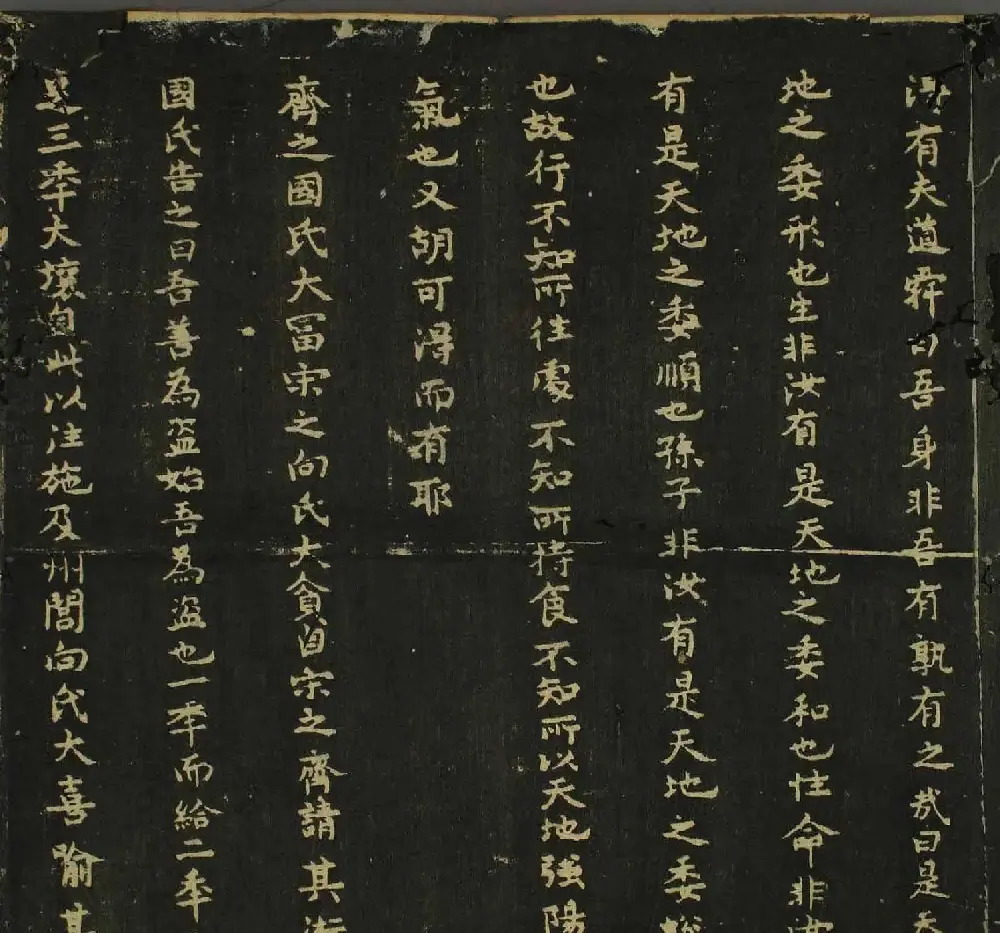 得有夫道舜曰吾身非吾有孰有之哉曰是天
地之委形也生非汝有是天地之委和也性命非汝
有是天地之委順也孫子非汝有是天地之委蛻
也故行不知所往處不知所持食不知所以天地強陽
氣也又胡可得而有耶
齊之國氏大冨宋之向氏大貧自宋之齊請其術
國氏告之曰吾善為盗始吾為盗也一年而給二年
足三年大壤自此以往施及州閭向氏大喜喻其